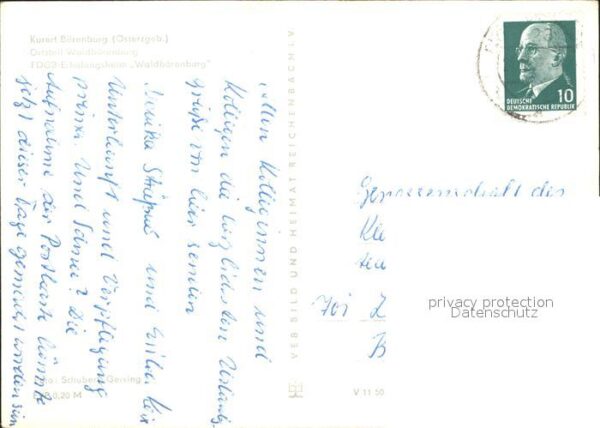 Kurort Bärenburg (Osterzgeb.)
Ortsteil Waldbärenburg
FDGB-Erholungsheim „Waldbärenburg"
Allen Kolleginnen und
Kollegen die herzlichsten Urlaubs-
grüße von hier senden
und
Unterkunft und Verpflegung
prima. Und Schnee? Die
Aufnahme der Postkarte könnte
jetzt dieser Tage gemacht worden sein
Foto: Schubert, Geising
0,20 M
VEB BILD UND HEIMAT REICHENBACH i. V.
V 11 50
10
DEUTSCHE
DEMOKRATISCHE REPUBLIK
Genossenschaft des
Kle
701 L
B
privacy protection
Datenschutz